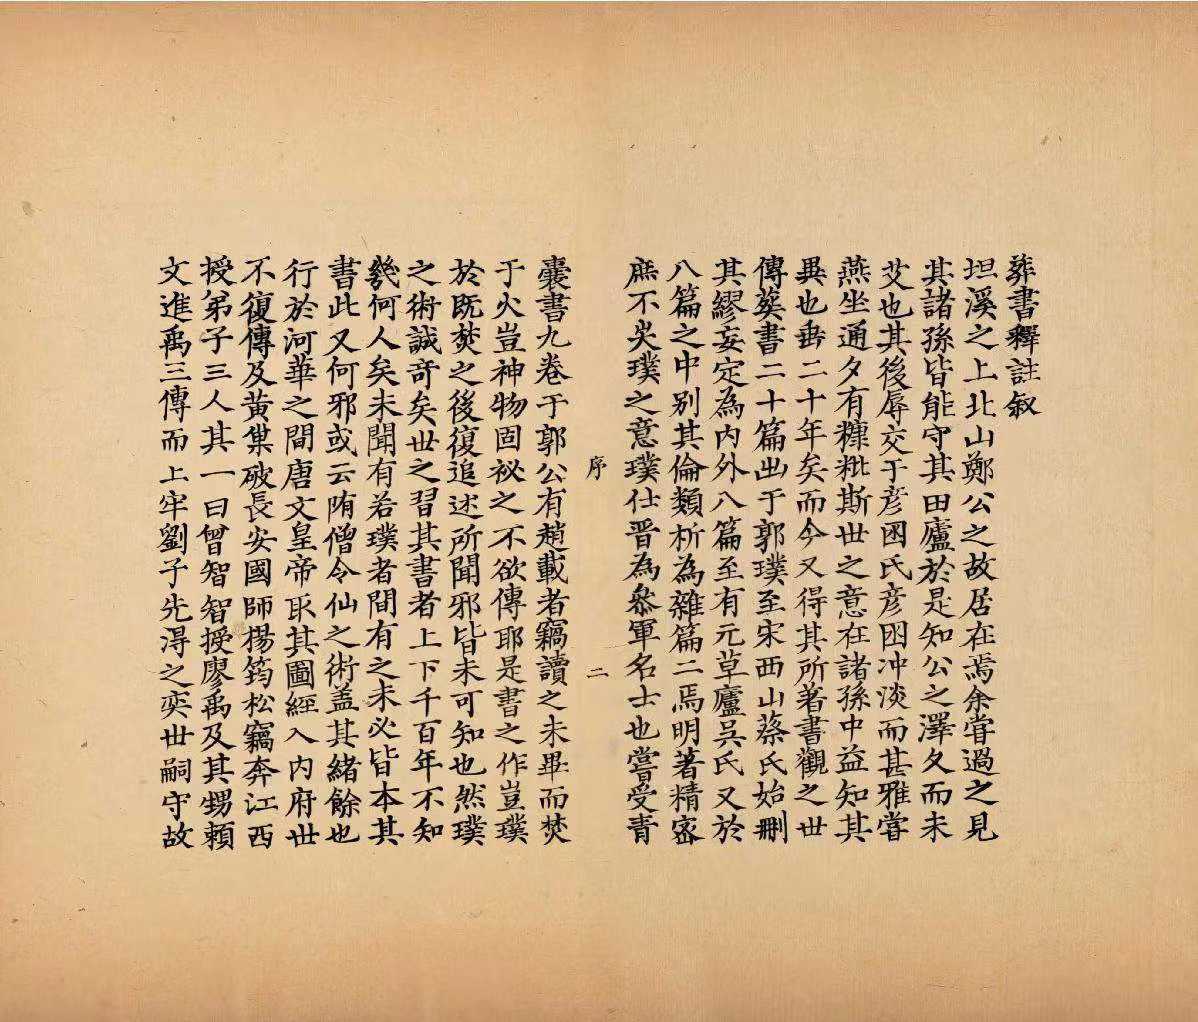 葬書釋註敘
坦溪之上北山鄭公之故居在焉余甞過之見
其諸孫皆能守其田廬於是知公之澤久而未
艾也其後辱交于彥困氏彥困冲淡而甚雅甞
燕坐通夕有糠粃斯世之意在諸孫中益知其
異也毎二十年矣而今又得其所著書觀之世
傳葬書二十篇出于郭璞至宋西山蔡氏始刪
其繆妄定為內外八篇至有元草廬吳氏又於
八篇之中別其倫類析為雜篇二焉明著精密
庶不失璞之意璞仕晋為參軍名士也嘗受青
序
二
囊書九卷于郭公有趙載者竊讀之未畢而焚
于火豈神物固祕之不欲傳耶是書之作豈璞
於既焚之後復追述所聞邪皆未可知也然璞
之術誠奇矣世之習其書者上下千百年不知
幾何人矣未聞有若璞者間有之未必皆本其
書此又何邪或云隋僧令仙之術盖其緒餘也
行於河華之間唐文皇帝取其圖經入內府世
不復傳及黃巢破長安國師楊筠松竊奔江西
授弟子三人其一曰曾智智授廖禹及其甥頼
文進禹三傳而上牢劉子先淂之奕世嗣守故